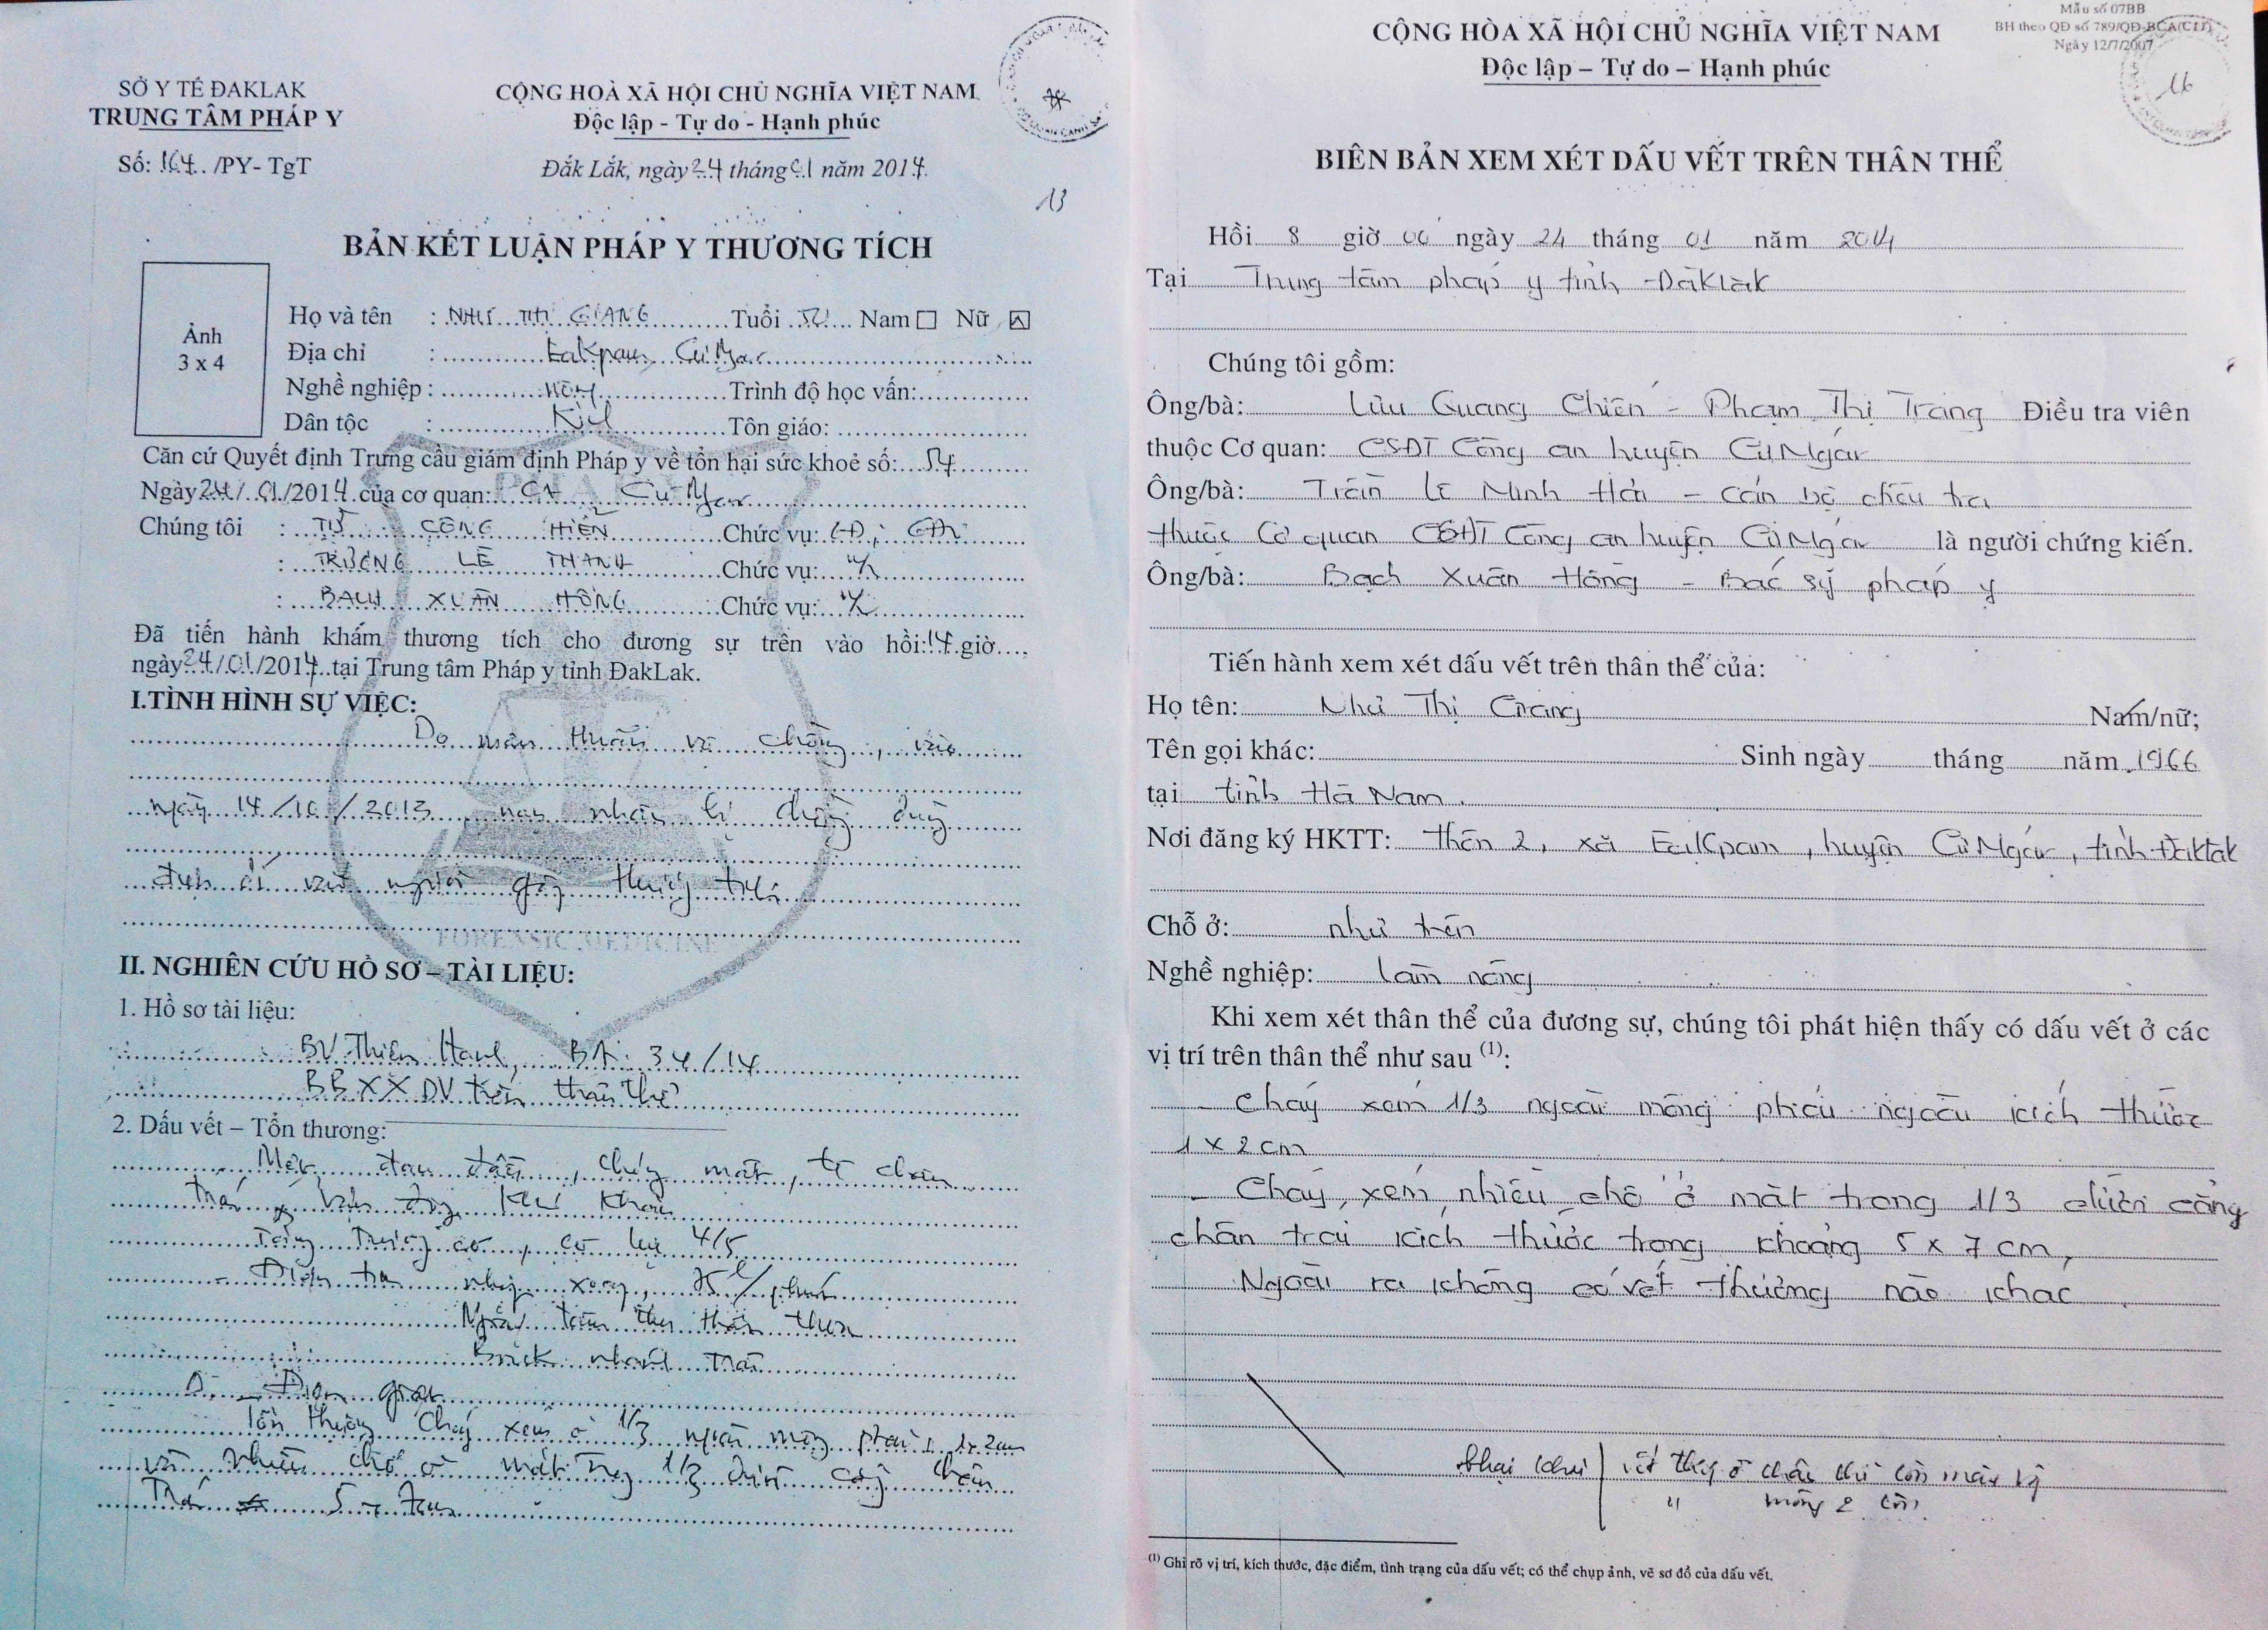 SỞ Y TẾ ĐAKLAK
TRUNG TÂM PHÁP Y
Số: 164../PY- TgT
CỘNG HOÀ XÃ HỘI CHỦ NGHĨA VIỆT NAM
Độc lập - Tự do - Hạnh phúc
Đắk Lắk, ngày 24 tháng 01 năm 2014.
13
BẢN KẾT LUẬN PHÁP Y THƯƠNG TÍCH
Ảnh
3 x 4
Họ và tên : NHƯ THỊ GIANG Tuổi Nam Nữ
Địa chỉ : EaKpam, CưMgar
Nghề nghiệp : Trình độ học vấn:
Dân tộc : Kinh Tôn giáo:
Căn cứ Quyết định Trưng cầu giám định Pháp y về tổn hại sức khoẻ số: 54
Ngày 24/01/2014 của cơ quan: CA CưMgar
Chúng tôi : TỪ CÔNG HIỂN Chức vụ:
: TRƯƠNG LÊ THANH Chức vụ:
: BẠCH XUÂN HỒNG Chức vụ:
Đã tiến hành khám thương tích cho đương sự trên vào hồi: 14 giờ....
ngày 24/01/2014 tại Trung tâm Pháp y tỉnh ĐakLak.
I.TÌNH HÌNH SỰ VIỆC:
Do mâu thuẫn vợ chồng, vào
ngày 14/10/2013, nạn nhân bị chồng dùng
gây thương tích
FORENSIC MEDICINE
II. NGHIÊN CỨU HỒ SƠ – TÀI LIỆU:
1. Hồ sơ tài liệu:
BV Thiện Hạnh, BA: 34/14
BBXXDV trên thân thể
2. Dấu vết – Tổn thương:
Mệt, đau đầu, chóng mặt, tê chân
trái, vận động khó khăn
Tăng trương cơ, cơ lực 4/5
Điện tim nhịp xoang, 75 l/phút
Ngoại tâm thu thất thưa
Block nhánh trái
Tổn thương cháy xém ở 1/3 ngoài mông phải 1x2cm
và nhiều chỗ ở mặt trong 1/3 dưới cẳng chân
Trái 5 x 7cm
Mẫu số 07BB
BH theo QĐ số 789/QĐ-BCA(C11)
Ngày 12/7/2007
16
CỘNG HÒA XÃ HỘI CHỦ NGHĨA VIỆT NAM
Độc lập – Tự do – Hạnh phúc
BIÊN BẢN XEM XÉT DẤU VẾT TRÊN THÂN THỂ
Hồi 8 giờ 00 ngày 24 tháng 01 năm 2014
Tại Trung tâm pháp y tỉnh ĐăkLăk
Chúng tôi gồm:
Ông/bà: Lưu Quang Chiến - Phạm Thị Trang Điều tra viên
thuộc Cơ quan: CSĐT Công an huyện CưMgar
Ông/bà: Trần Lê Minh Hải - cán bộ điều tra
thuộc Cơ quan CSĐT Công an huyện CưMgar là người chứng kiến.
Ông/bà: Bạch Xuân Hồng - Bác sỹ pháp y
Tiến hành xem xét dấu vết trên thân thể của:
Họ tên: Như Thị Giang Nam/nữ;
Tên gọi khác: Sinh ngày tháng năm 1966
tại tỉnh Hà Nam.
Nơi đăng ký HKTT: thôn 2, xã EaKpam, huyện CưMgar, tỉnh Đăklăk
Chỗ ở: như trên
Nghề nghiệp: làm nông
Khi xem xét thân thể của đương sự, chúng tôi phát hiện thấy có dấu vết ở các
vị trí trên thân thể như sau (1):
- Cháy xém 1/3 ngoài mông phải ngoài kích thước
1 x 2 cm
- Cháy xém nhiều chỗ ở mặt trong 1/3 dưới cẳng
chân trái kích thước trong khoảng 5 x 7 cm,
Ngoài ra không có vết thương nào khác
(1) Ghi rõ vị trí, kích thước, đặc điểm, tình trạng của dấu vết; có thể chụp ảnh, vẽ sơ đồ của dấu vết.